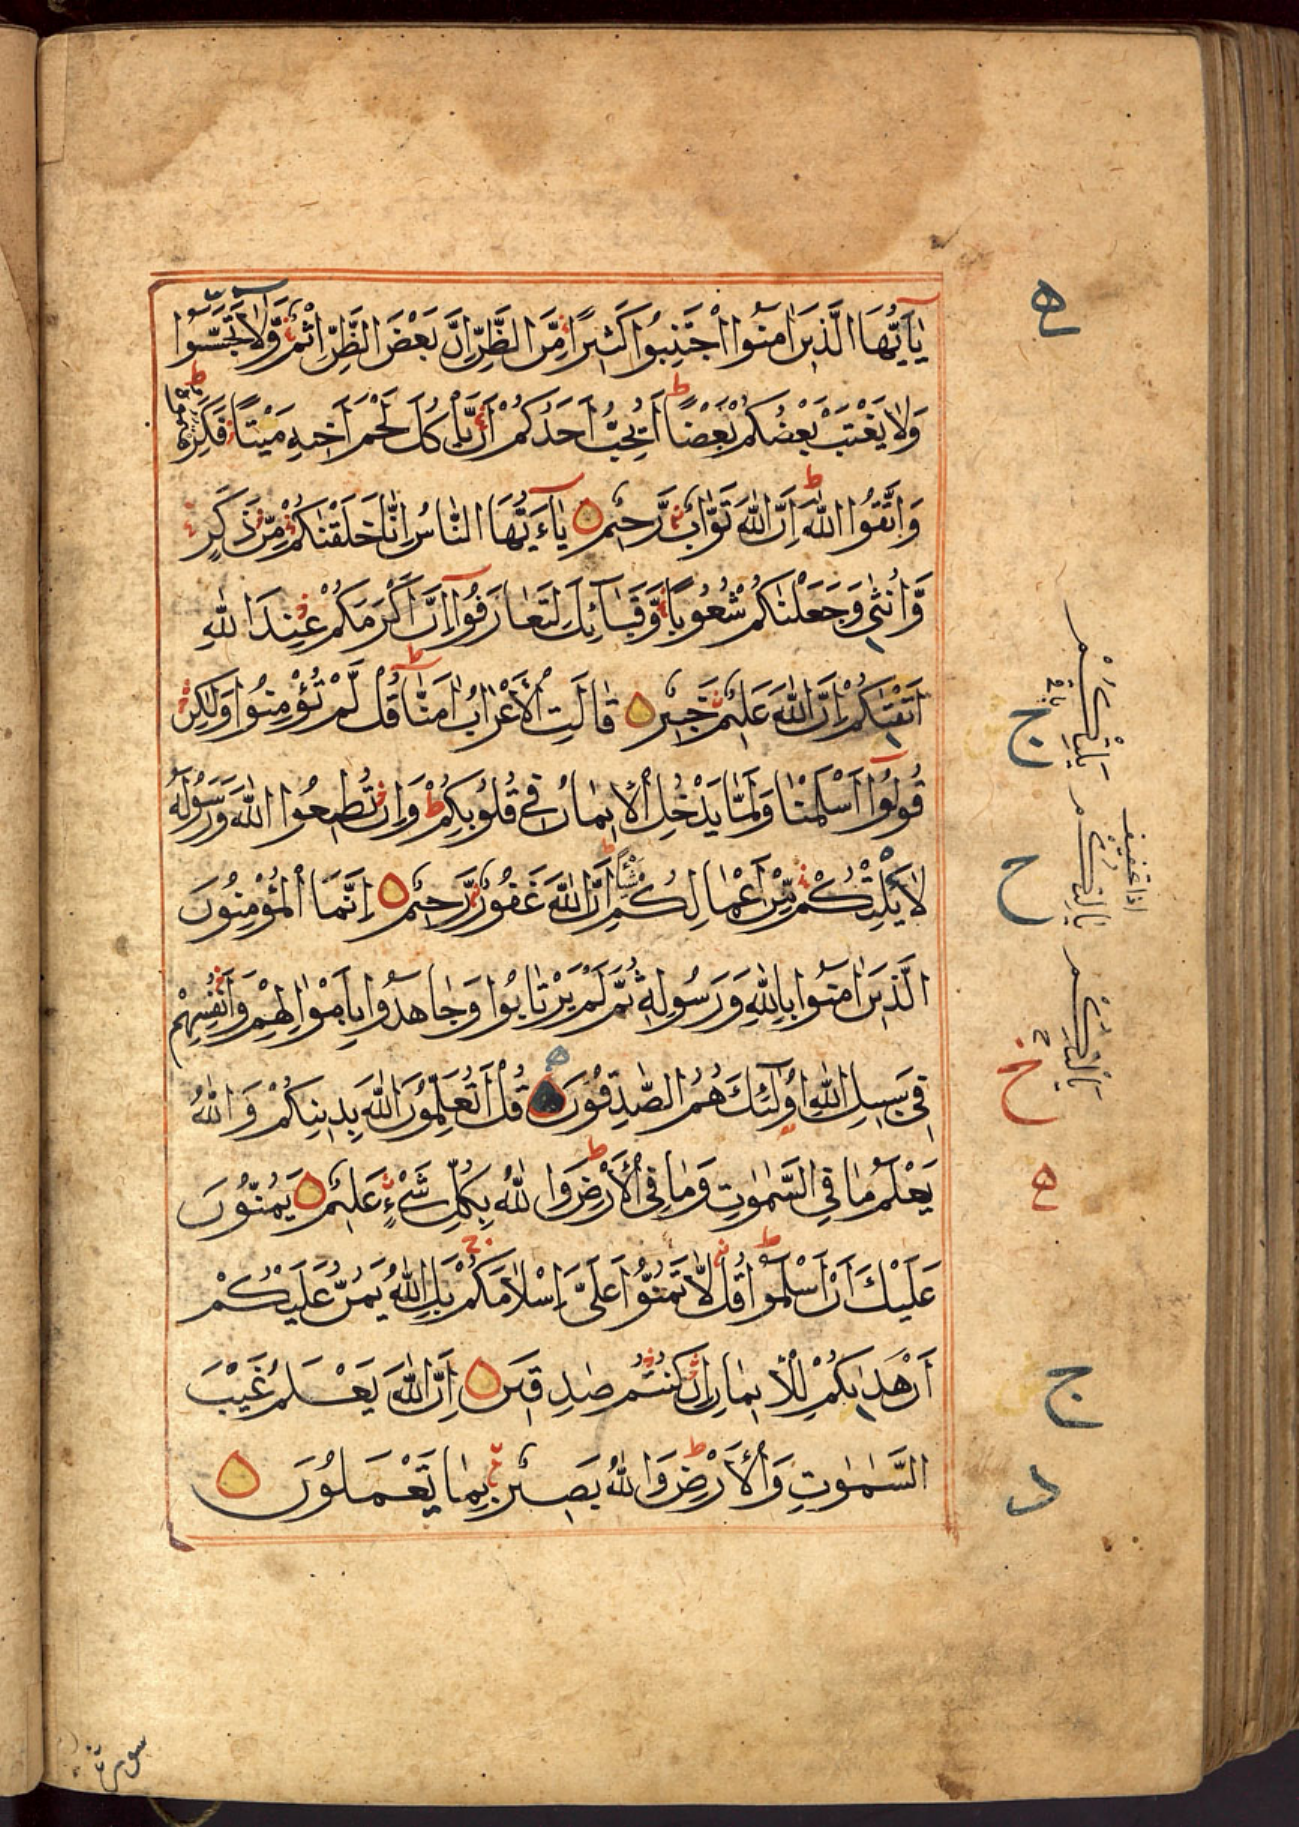 يَٰٓأَيُّهَا الَّذِينَ اٰمَنُوا اجْتَنِبُوا كَثِيرًا مِّنَ الظَّنِّ اِنَّ بَعْضَ الظَّنِّ اِثْمٌ وَّلَا تَجَسَّسُوا
وَلَا يَغْتَبْ بَعْضُكُمْ بَعْضًا ط اَيُحِبُّ اَحَدُكُمْ اَنْ يَّاْكُلَ لَحْمَ اَخِيهِ مَيْتًا فَكَرِهْتُمُوهُ ط
وَاتَّقُوا اللّٰهَ ط اِنَّ اللّٰهَ تَوَّابٌ رَّحِيمٌ يٰٓاَيُّهَا النَّاسُ اِنَّا خَلَقْنٰكُمْ مِّنْ ذَكَرٍ
وَّاُنْثٰى وَجَعَلْنٰكُمْ شُعُوبًا وَّقَبَآئِلَ لِتَعَارَفُوٓا اِنَّ اَكْرَمَكُمْ عِنْدَ اللّٰهِ
اَتْقٰىكُمْ اِنَّ اللّٰهَ عَلِيمٌ خَبِيرٌ قَالَتِ الْاَعْرَابُ اٰمَنَّا ط قُلْ لَّمْ تُؤْمِنُوا وَلٰكِنْ
قُولُوٓا اَسْلَمْنَا وَلَمَّا يَدْخُلِ الْاِيمَانُ فِي قُلُوبِكُمْ ط وَاِنْ تُطِيعُوا اللّٰهَ وَرَسُولَهُ
لَا يَلِتْكُمْ مِّنْ اَعْمَالِكُمْ شَيْئًا ط اِنَّ اللّٰهَ غَفُورٌ رَّحِيمٌ اِنَّمَا الْمُؤْمِنُونَ
الَّذِينَ اٰمَنُوا بِاللّٰهِ وَرَسُولِهِ ثُمَّ لَمْ يَرْتَابُوا وَجَاهَدُوا بِاَمْوَالِهِمْ وَاَنْفُسِهِمْ
فِي سَبِيلِ اللّٰهِ اُولٰٓئِكَ هُمُ الصّٰدِقُونَ قُلْ اَتُعَلِّمُونَ اللّٰهَ بِدِينِكُمْ وَاللّٰهُ
يَعْلَمُ مَا فِي السَّمٰوٰتِ وَمَا فِي الْاَرْضِ ط وَاللّٰهُ بِكُلِّ شَيْءٍ عَلِيمٌ يَمُنُّونَ
عَلَيْكَ اَنْ اَسْلَمُوا ط قُلْ لَّا تَمُنُّوا عَلَيَّ اِسْلَامَكُمْ ج بَلِ اللّٰهُ يَمُنُّ عَلَيْكُمْ
اَنْ هَدٰىكُمْ لِلْاِيمَانِ اِنْ كُنْتُمْ صٰدِقِينَ اِنَّ اللّٰهَ يَعْلَمُ غَيْبَ
السَّمٰوٰتِ وَالْاَرْضِ ط وَاللّٰهُ بَصِيرٌ بِمَا تَعْمَلُونَ
ج
ح
خ
ه
ج
د
سورة